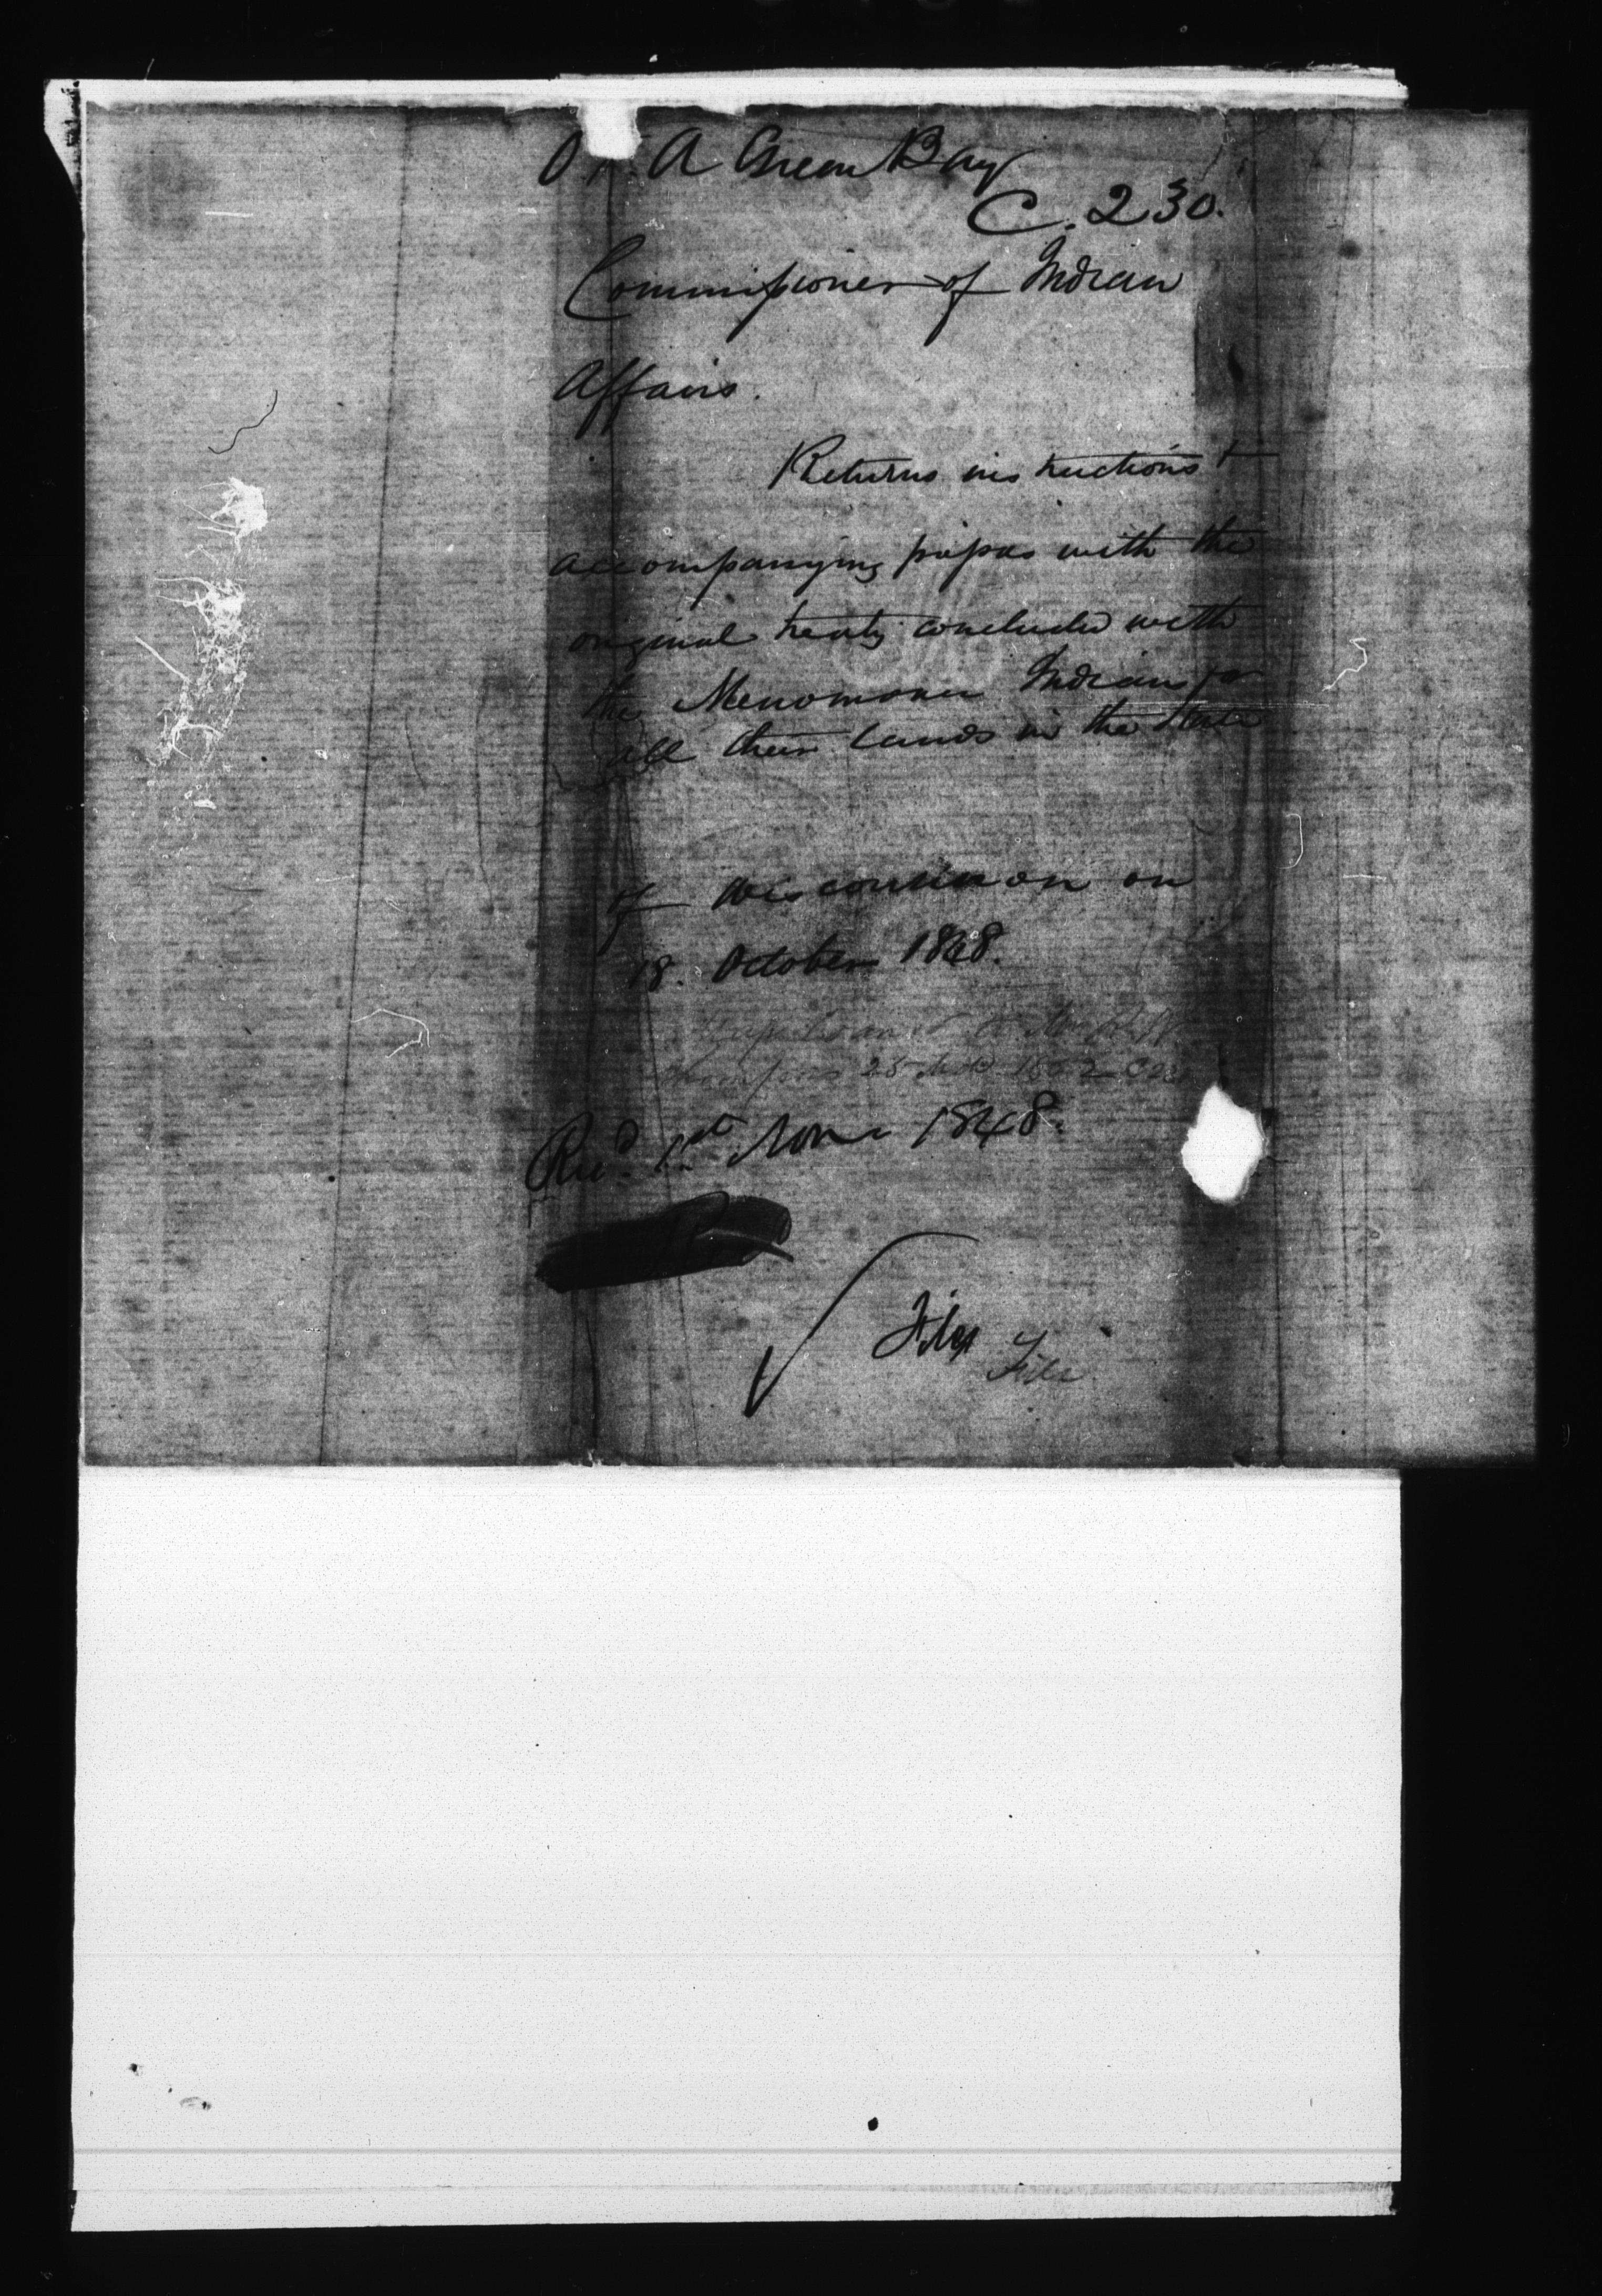 A Green Bay
C. 230.
Commissioner of Indian
Affairs.
Returns instructions &
accompanying papers with the
original treaty concluded with
the Menomonee Indians for
all their lands in the State
of Wisconsin on
18. October 1848.
25 1852
Recd. 1st Novr 1848.
Files
File